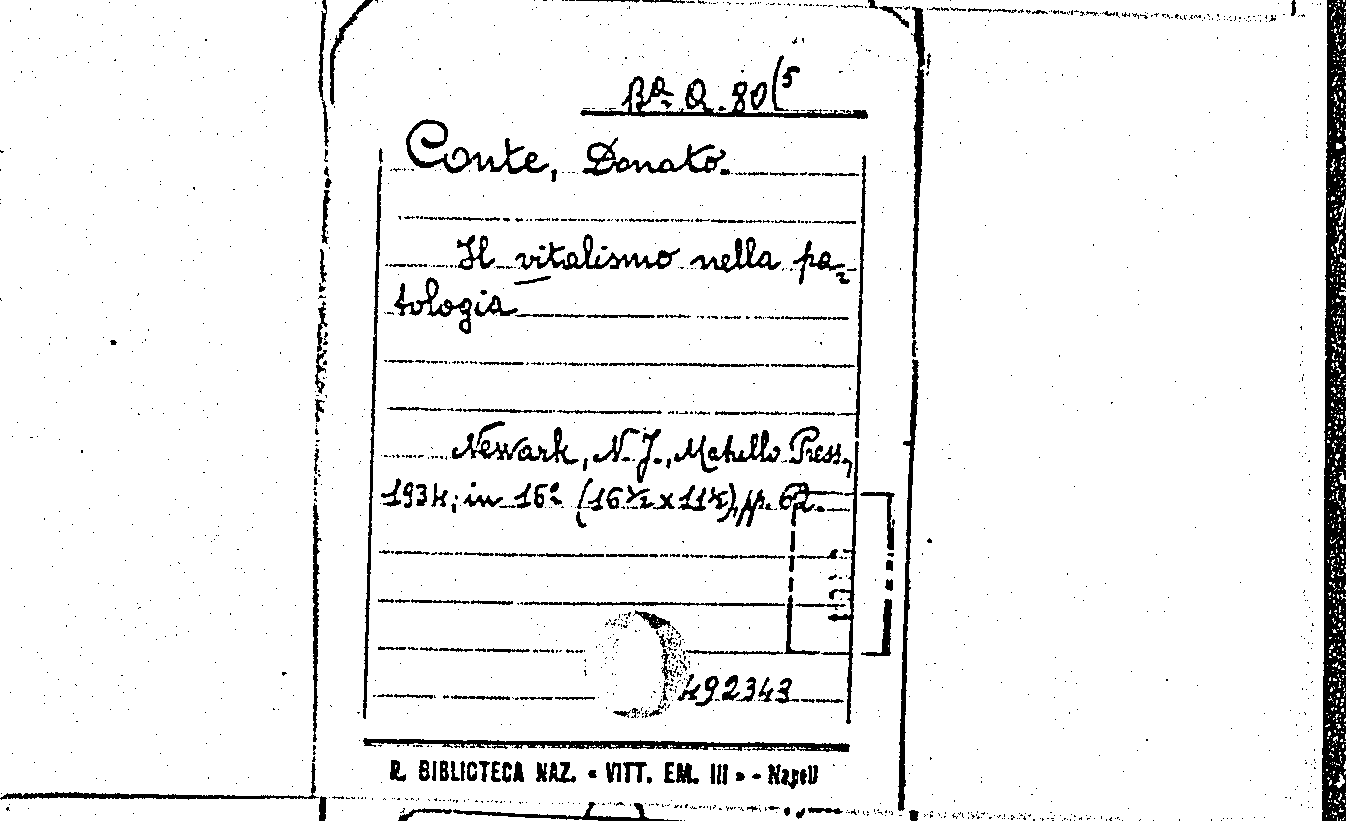 Bª. Q. 80(5
Conte, Donato.
Il vitalismo nella pa=
tologia
Newark, N. J., Matullo Press,
1934; in 16º (16½ x 11½), pp. 62.
492343
R. BIBLIOTECA NAZ. « VITT. EM. III » - Napoli